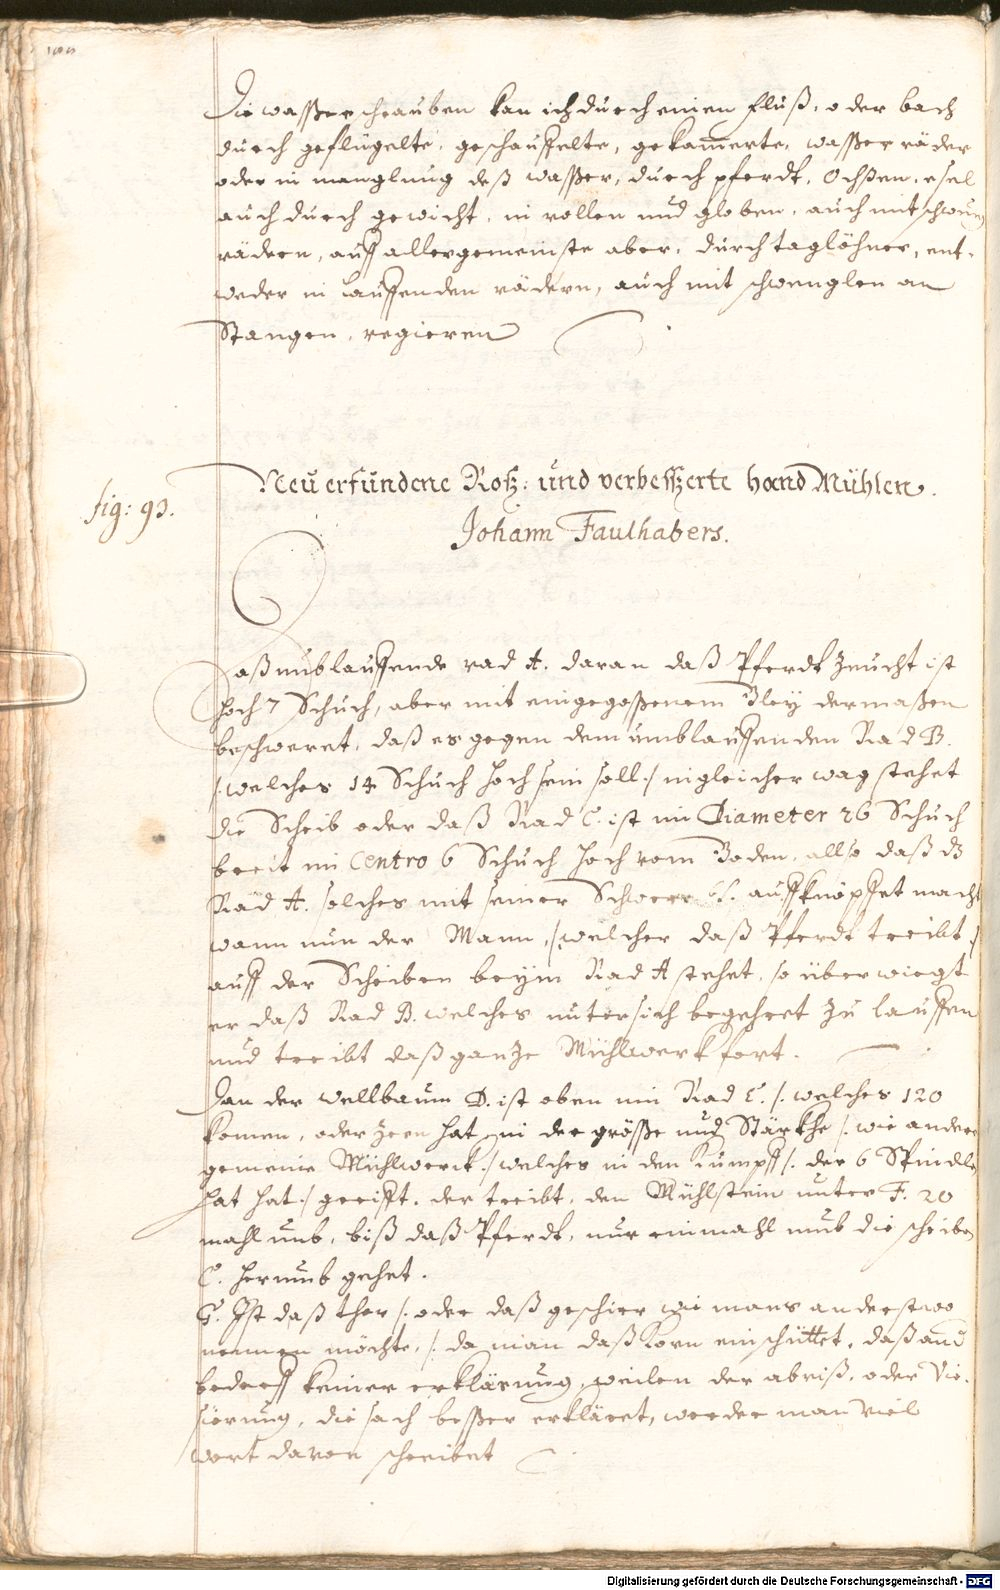 Die wasserschrauben kan ich durch einen fluß, oder bach
durch geflügelte, geschauffelte, gekam̄erte, wasser räder
oder in manglung deß wasser, durch pferdt, Ochßen, esel
auch durch gewicht, in rollen und globen, auch mit schwung
rädern, auff allergemeinste aber, durch taglöhner, ent-
weder in lauffenden rädern, auch mit schwenglen an
Stangen, regieren
fig: 93.
Neu erfundene Roß: und verbesserte hand Mühlen.
Johann Faulhabers.
Daß umblauffende rad A. daran daß Pferdt zeucht ist
hoch 7 Schuch, aber mit eingegoßenem Bley dermaßen
beschweret, daß es gegen dem umblauffenden Rad B.
/: welches 14 Schuch hoch sein soll :/ in gleicher wag stehet
die Scheib oder daß Rad C. ist im Diameter 26 Schuch
breit im Centro 6 Schuch hoch vom Boden, allso daß dz
Rad A. solches mit seiner Schwere auffknöpffet macht
wann nun der Mann, /: welcher daß Pferdt treibt :/
auff der Scheiben beym Rad A stehet, so überwiegt
er daß Rad B. welches untersich begehret zu lauffen
und treibt daß ganze Mühlwerk fort.
Dan der wellbaum D. ist oben im Rad E. /: welches 120
kamen, oder zeen hat in der größe und Stärkhe /: wie andere
gemeine Mühlwerck :/ welches in den Kumpff /: der 6 Spindle
hat hat :/ greifft, der treibt, den Mühlstein unter F. 20
mahl umb, biß daß Pferdt, nur einmahl umb die scheiben
C. herumb gehet.
G. Ist daß ther /: oder daß geschier wie mans anderstwo
nennen möchte, /: da man daß Korn einschüttet, daß auch
bedarff keiner erklärung, weilen der abriß, oder Vi-
sierung, die sach besser erkläret, weder man viel
wort davon schreibet
Digitalisierung gefördert durch die Deutsche Forschungsgemeinschaft - DFG